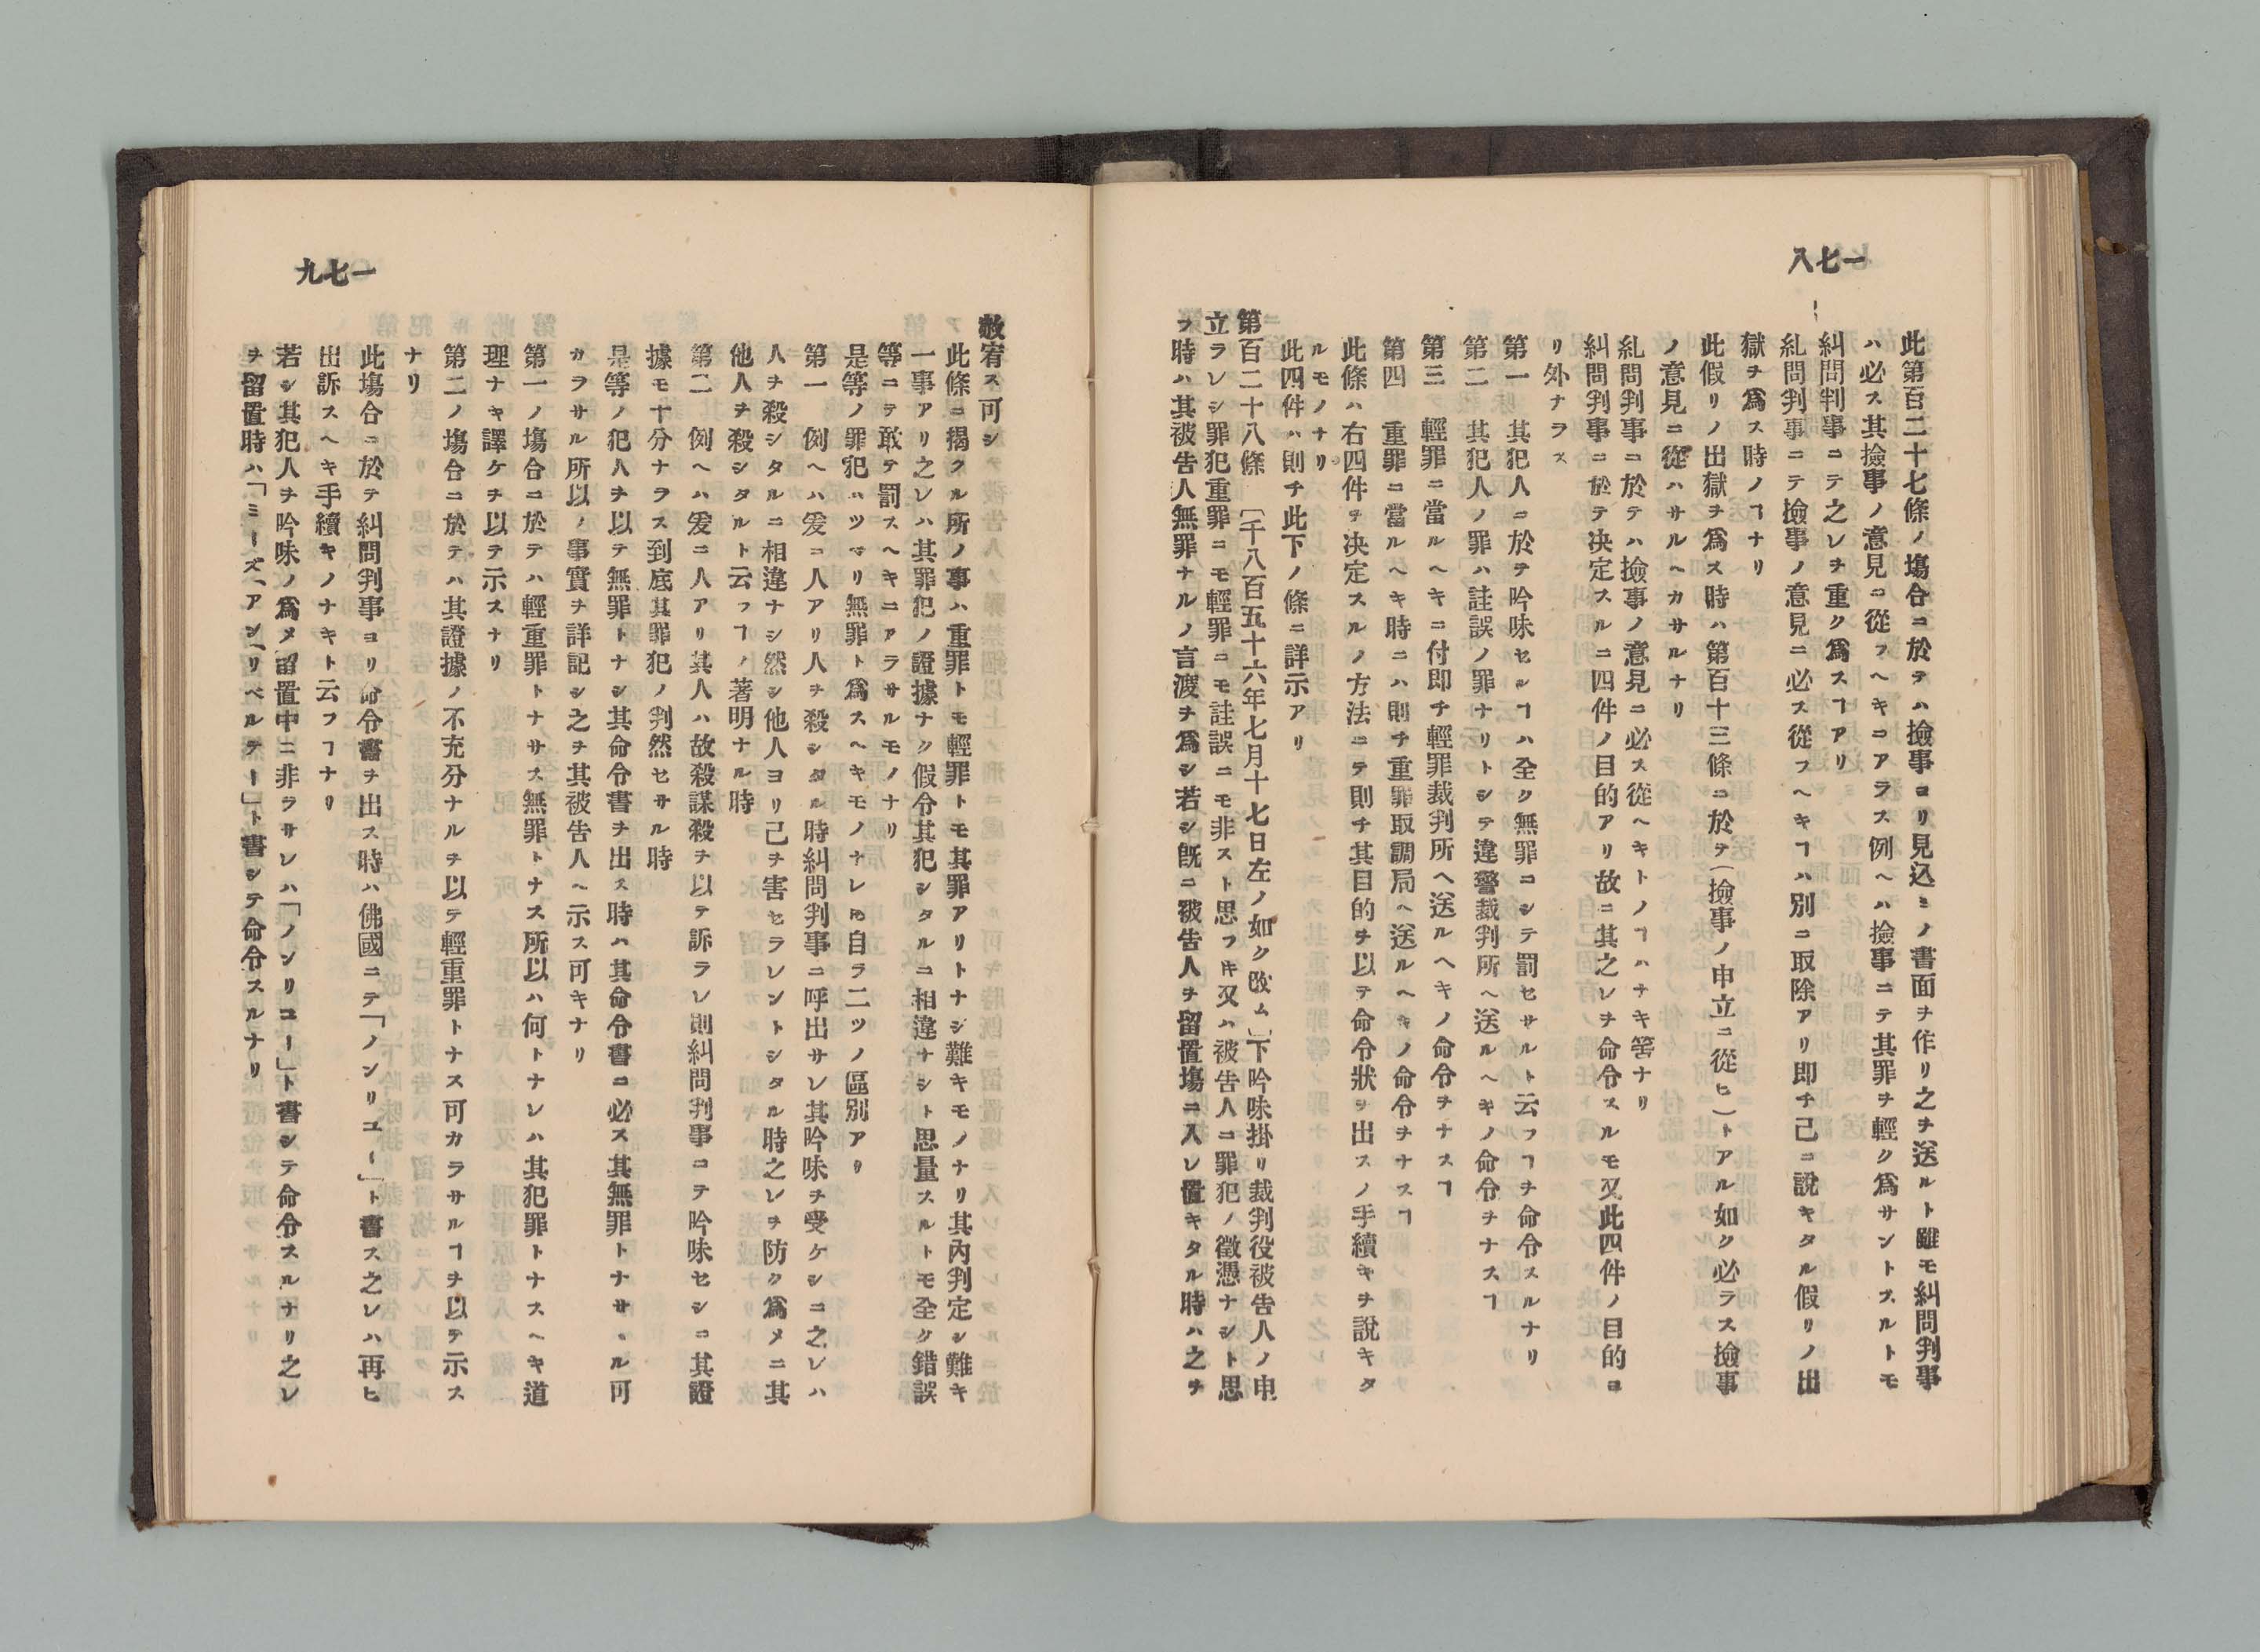 一七八
此第百二十七條ノ塲合ニ於テハ撿事ヨリ見込ミノ書面ヲ作リ之ヲ送ルト雖モ糾問判事
ハ必ス其撿事ノ意見ニ從フヘキニアラス例ヘハ撿事ニテ其罪ヲ輕ク爲サントスルトモ
糾問判事ニテ之レヲ重ク爲スヿアリ
糾問判事ニテ撿事ノ意見ニ必ス從フヘキヿハ別ニ取除アリ即チ己ニ說キタル假リノ出
獄ヲ爲ス時ノヿナリ
此假リノ出獄ヲ爲ス時ハ第百十三條ニ於テ(撿事ノ申立ニ從ヒ)トアル如ク必ラス撿事
ノ意見ニ從ハサルヘカサルナリ
糾問判事ニ於テハ撿事ノ意見ニ必ス從ヘキトノヿハナキ筈ナリ
糾問判事ニ於テ決定スルニ四件ノ目的アリ故ニ其之レヲ命令スルモ又此四件ノ目的ヨ
リ外ナラス
第一 其犯人ニ於テ吟味セルヿハ全ク無罪ニシテ罰セサルト云フヿヲ命令スルナリ
第二 其犯人ノ罪ハ註誤ノ罪ナリトシテ違警裁判所ヘ送ルヘキノ命令ヲナスヿ
第三 輕罪ニ當ルヘキニ付即チ輕罪裁判所ヘ送ルヘキノ命令ヲナスヿ
第四 重罪ニ當ルヘキ時ニハ則チ重罪取調局ヘ送ルヘキノ命令ヲナスヿ
此條ハ右四件ヲ決定スルノ方法ニテ則チ其目的ヲ以テ命令狀ヲ出スノ手續キヲ說キタ
ルモノナリ
此四件ハ則チ此下ノ條ニ詳示アリ
第百二十八條 〔千八百五十六年七月十七日左ノ如ク改ム〕下吟味掛リ裁判役被告人ノ申
立ラレシ罪犯重罪ニモ輕罪ニモ註誤ニモ非スト思フ𪜈又ハ被告人ニ罪犯ノ徵憑ナシト思
フ時ハ其被告人無罪ナルノ言渡ヲ爲シ若シ旣ニ被告人ヲ留置塲ニ入レ置キタル時ハ之ヲ
一七九
赦宥ス可シ
此條ニ揭クル所ノ事ハ重罪トモ輕罪トモ其罪アリトナシ難キモノナリ其內判定シ難キ
一事アリ之レハ其罪犯ノ證據ナク假令其犯シタルニ相違ナシト思量スルトモ全ク錯誤
等ニテ敢テ罰スヘキニアラサルモノナリ
是等ノ罪犯ハツマリ無罪ト爲スヘキモノナレ𪜈自ラ二ツノ區別アリ
第一 例ヘハ爰ニ人アリ人ヲ殺シタル時糾問判事ニ呼出サレ其吟味ヲ受ケシニ之レハ
人ヲ殺シタルニ相違ナシ然シ他人ヨリ己ヲ害セラレントシタル時之レヲ防ク爲メニ其
他人ヲ殺シタルト云フヿノ著明ナル時
第二 例ヘハ爰ニ人アリ其人ハ故殺謀殺ヲ以テ訴ラレ則糾問判事ニテ吟味セシニ其證
據モ十分ナラス到底其罪犯ノ判然セサル時
是等ノ犯人ヲ以テ無罪トナシ其命令書ヲ出ス時ハ其命令書ニ必ス其無罪トナサヽル可
カラサル所以ノ事實ヲ詳記シ之ヲ其被告人ヘ示ス可キナリ
第一ノ塲合ニ於テハ輕重罪トナサス無罪トナス所以ハ何トナレハ其犯罪トナスヘキ道
理ナキ譯ケヲ以テ示スナリ
第二ノ塲合ニ於テハ其證據ノ不充分ナルヲ以テ輕重罪トナス可カラサルヿヲ以テ示ス
ナリ
此塲合ニ於テ糾問判事ヨリ命令書ヲ出ス時ハ佛國ニテ「ノンリユー」ト書ス之レハ再ヒ
出訴スヘキ手續キノナキト云フヿナリ
若シ其犯人ヲ吟味ノ爲メ留置中ニ非ラサレハ「ノンリユー」ト書シテ命令スルナリ之レ
ヲ留置時ハ「ミーズ「アン「リベルテー」ト書シテ命令スルナリ